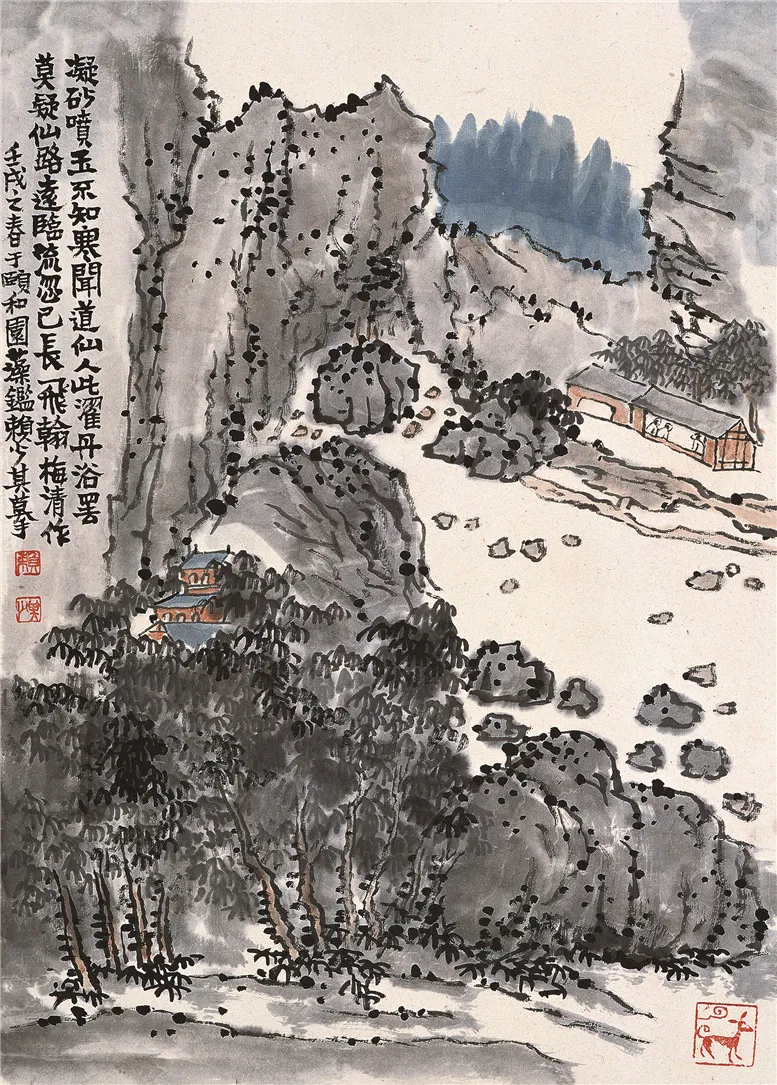 凝砂噴玉不知寒聞道仙人此濯丹浴罢
莫疑仙路遠臨流忽已長飛翰梅清作
壬戌之春于頤和園藻鑑賴少其摹